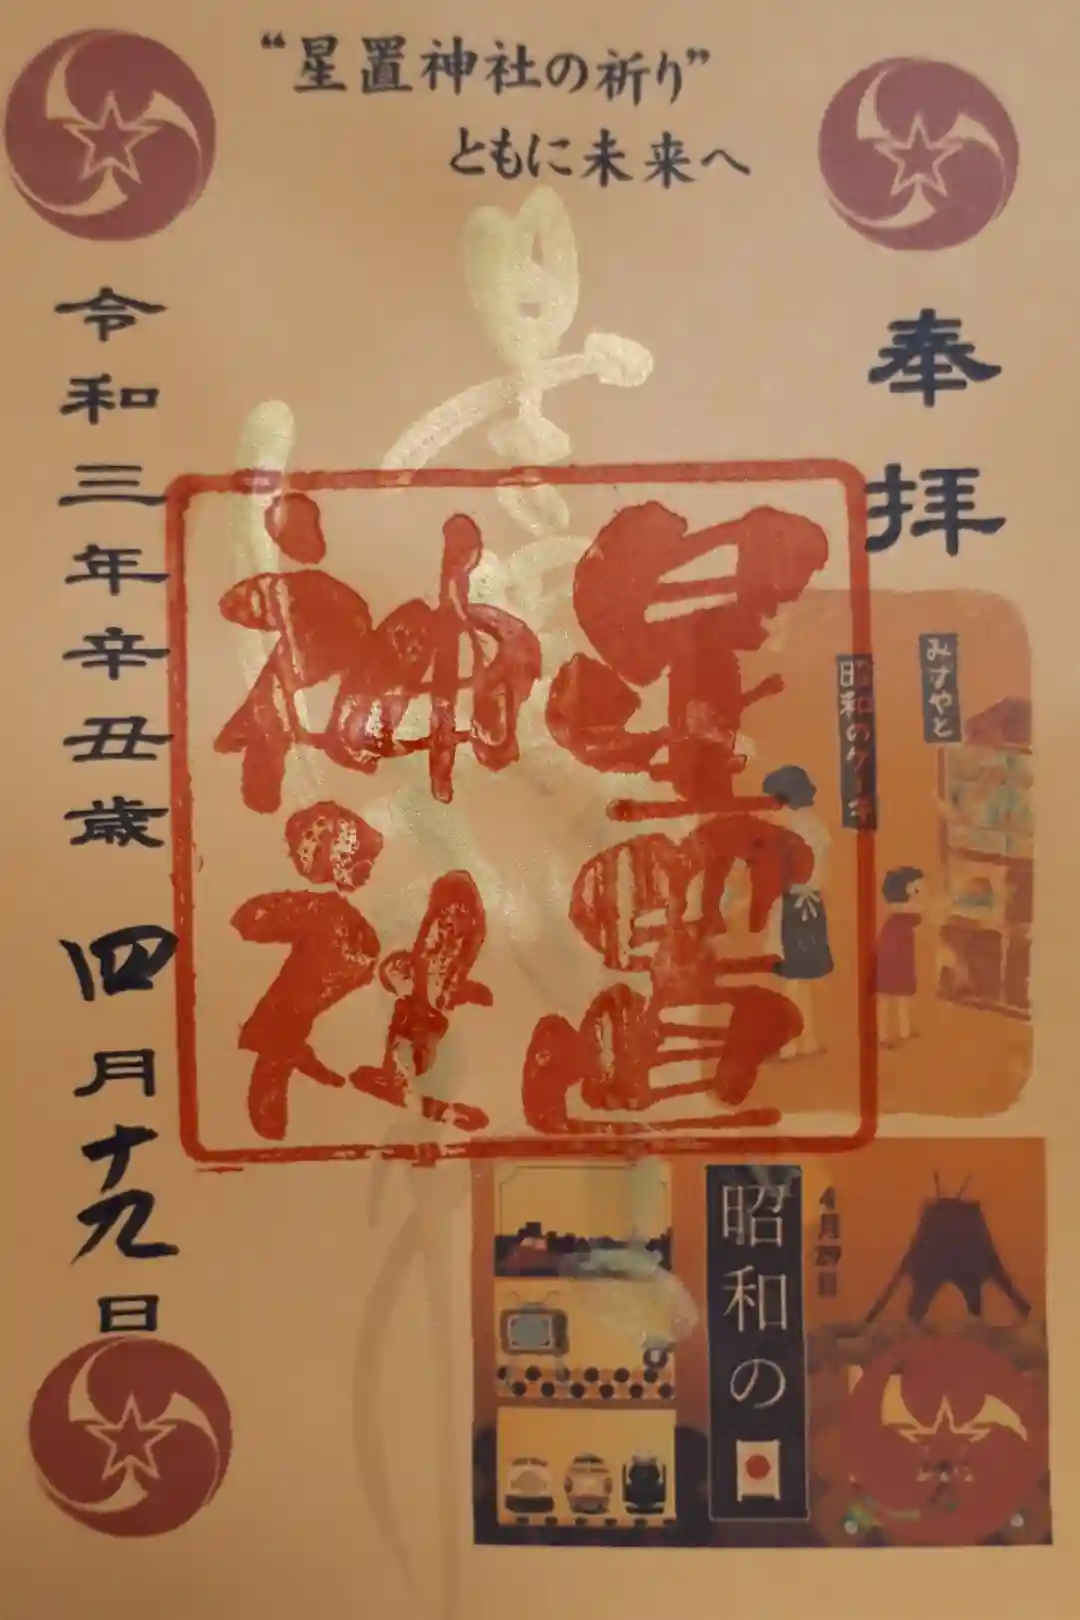 “星置神社の祈り”
ともに未来へ
奉拝
星置
神社
令和三年辛丑歳 四月十九日
みすやと
昭和のケーキ
昭和の日
4月29日